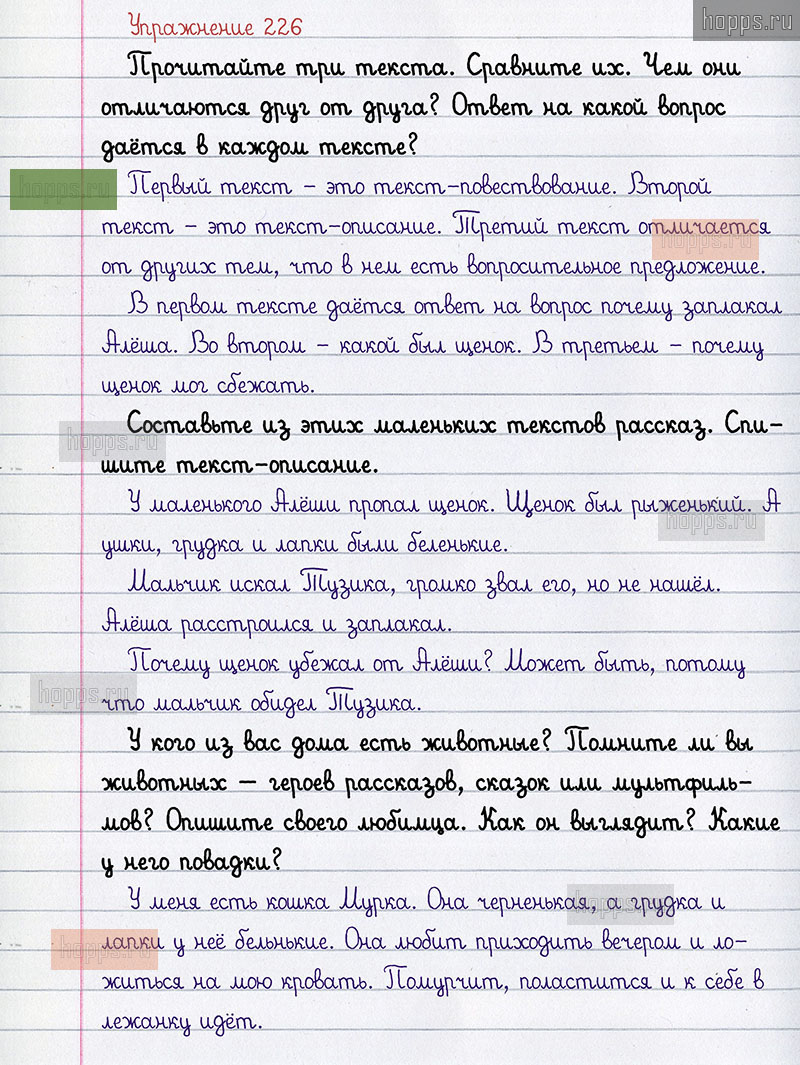 hopps.ru
Упражнение 226
Прочитайте три текста. Сравните их. Чем они
отличаются друг от друга? Ответ на какой вопрос
даётся в каждом тексте?
hopps.ru
Первый текст – это текст-повествование. Второй
текст – это текст-описание. Третий текст отличается
hopps.ru
от других тем, что в нем есть вопросительное предложение.
В первом тексте даётся ответ на вопрос почему заплакал
Алёша. Во втором – какой был щенок. В третьем – почему
щенок мог сбежать.
Составьте из этих маленьких текстов рассказ. Спи-
hopps.ru
шите текст-описание.
У маленького Алёши пропал щенок. Щенок был рыженький. А
hopps.ru
ушки, грудка и лапки были беленькие.
Мальчик искал Тузика, громко звал его, но не нашёл.
Алёша расстроился и заплакал.
Почему щенок убежал от Алёши? Может быть, потому
hopps.ru
что мальчик обидел Тузика.
У кого из вас дома есть животные? Помните ли вы
животных – героев рассказов, сказок или мультфиль-
мов? Опишите своего любимца. Как он выглядит? Какие
у него повадки?
У меня есть кошка Мурка. Она черненькая, а грудка и
hopps.ru
лапки у неё бельнькие. Она любит приходить вечером и ло-
hopps.ru
житься на мою кровать. Помурчит, поластится и к себе в
лежанку идёт.